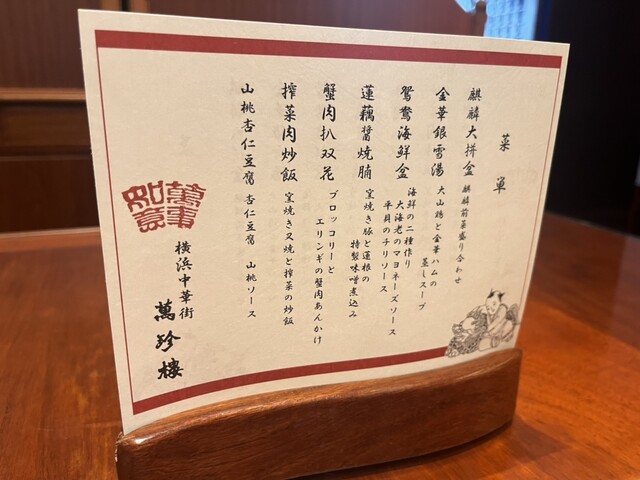 菜單
麒麟大拼盆 麒麟前菜盛り合わせ
金華銀雪湯 大山鶏と金華ハムの
蒸しスープ
鴛鴦海鮮盒 海鮮の二種作り
大海老のマヨネーズソース
平貝のチリソース
蓮藕醤焼腩 窯焼き豚と蓮根の
特製味噌煮込み
蟹肉扒双花 ブロッコリーと
エリンギの蟹肉あんかけ
搾菜肉炒飯 窯焼き叉焼と搾菜の炒飯
山桃杏仁豆腐 杏仁豆腐 山桃ソース
萬事如意
横浜中華街
萬珍樓